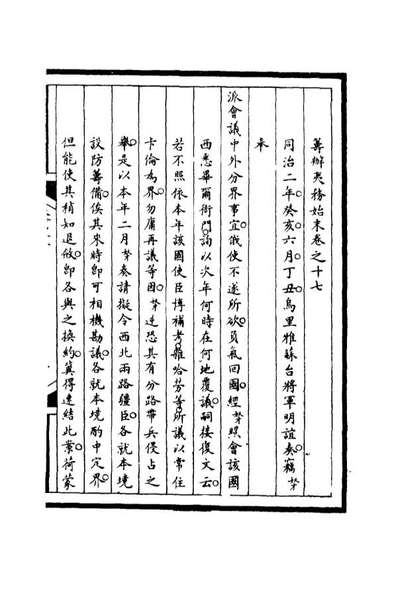 籌辦夷務始末卷之十七
同治二年癸亥六月丁丑烏里雅蘇台將軍明誼奏竊奴才
奉
派會議中外分界事宜俄使不遂所欲負氣回國經奴才照會該國
西悉畢爾衙門詢以次年何時在何地覆議嗣接復文云
若不照依本年該國使臣博補考雜哈勞等所議以常住
卡倫為界勿庸再議等因奴才逆恐其有分路帶兵侵占之
舉是以本年二月奴才奏請擬令西北兩路疆臣各就本境
設防籌備俟其來時即可相機勘議各就本境酌中定界
但能使其稍如退攸即各與之換約冀得速結此案荷蒙